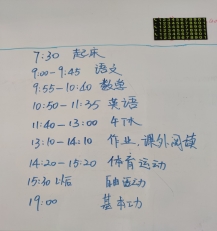 7:30 起床
9:00-9:45 语文
9:55-10:40 数学
10:50-11:35 英语
11:40-13:00 午休
13:10-14:10 作业、课外阅读
14:20-15:20 体育运动
15:30以后 自由活动
19:00 基本功